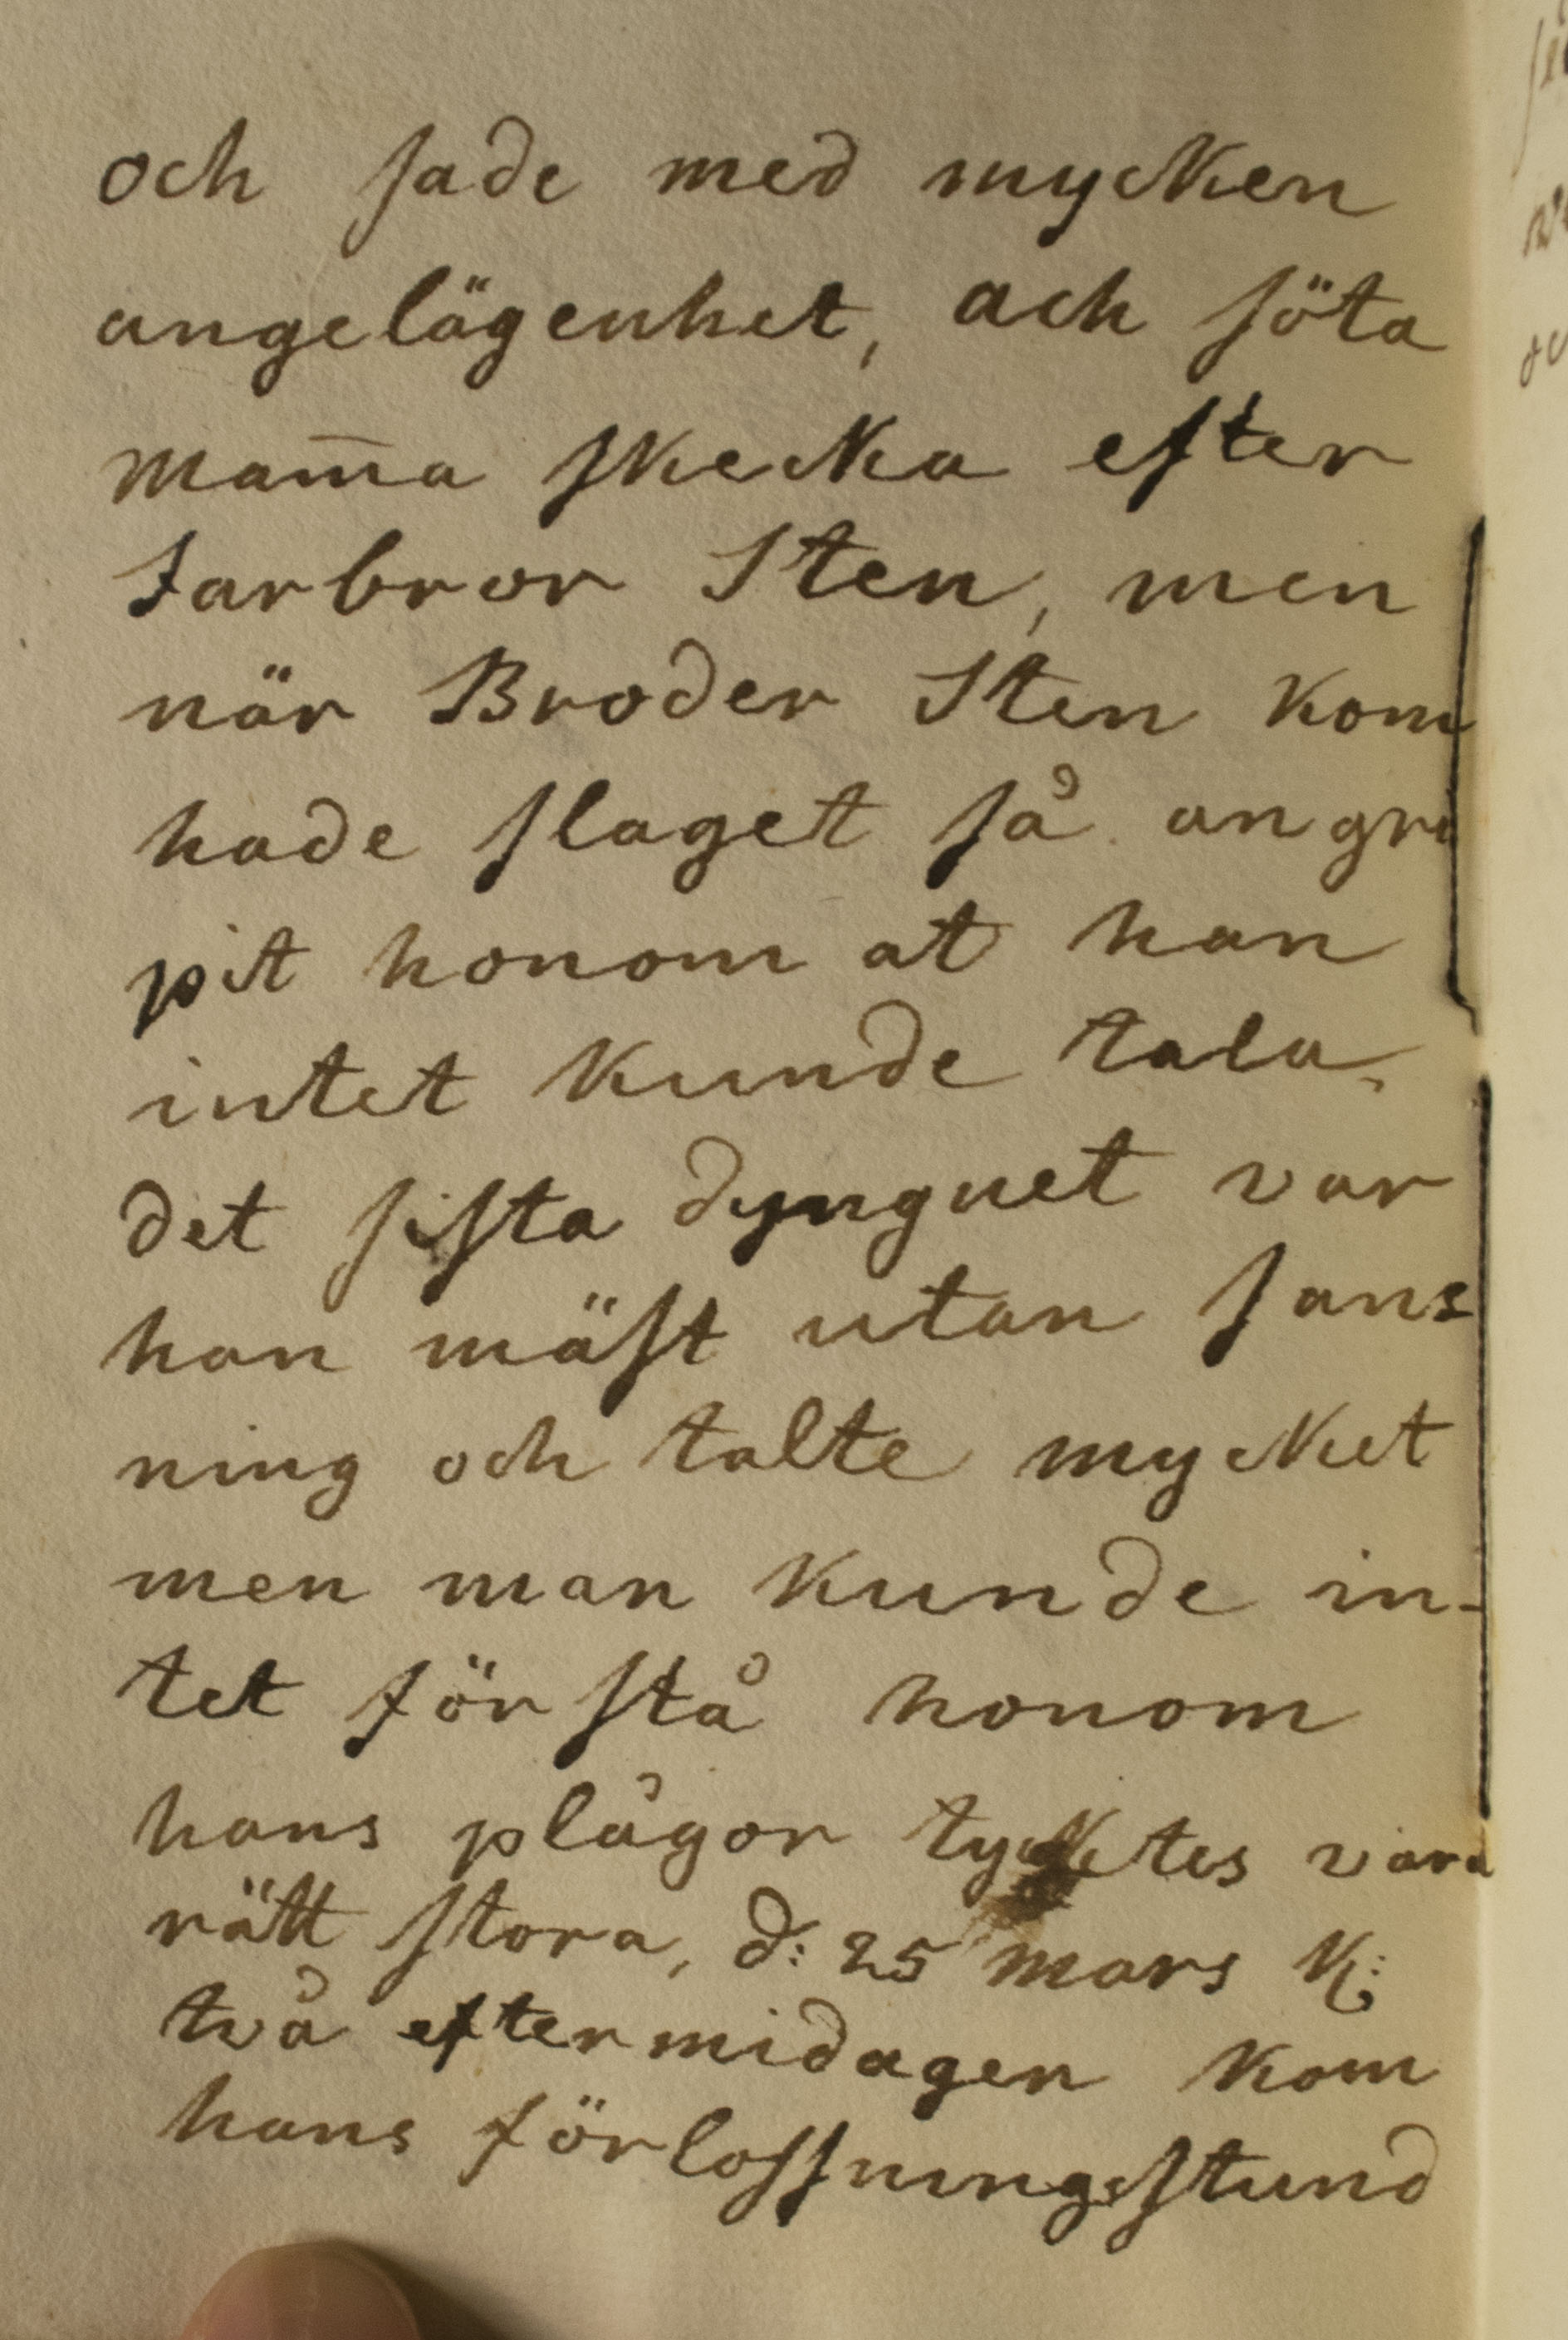 och sade med mycken
angelägenhet, ach söta
mam̄a skecka efter
farbror Sten, men
när Broder Sten kom
hade slaget så angri
pit honom at han
intet kunde tala,
det sista dyngnet var
han mäst utan sans
ning och talte mycket
men man kunde in-
tet förstå honom
hans plågor tycktes vara
rätt stora, d: 25 mars k:
två eftermidagen kom
hans förlossningsstund